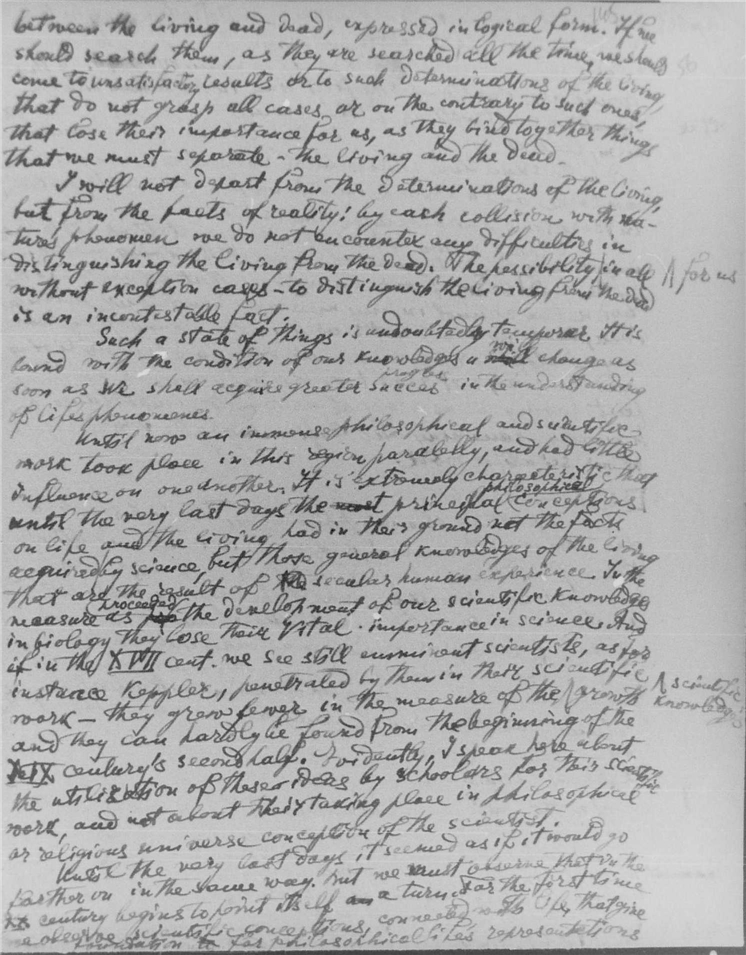 between the living and dead, expressed in logical form. If we
should search them, as they are searched all the time, we should
come to unsatisfactory results or to such determinations of the living,
that do not grasp all cases, or on the contrary to such ones,
that lose their importance for us, as they bind together things
that we must separate - the living and the dead.
I will not depart from the determinations of the living,
but from the facts of reality: by each collision with na-
ture's phenomen we do not encounter any difficulties in
distinguishing the living from the dead. The possibility in all for us
without exception cases - to distinguish the living from the dead
is an incontestable fact.
Such a state of things is undoubtedly temporar. It is
bound with the condition of our knowledges will change as
soon as we shall acquire greater succes progres in the understanding
of lifes phenomenes.
Until now an immense philosophical and scientific
work took place in this region paralelly, and had little
influence on one another. It is extremely characteristic that
until the very last days the most principal philosophical conceptions
on life and the living had in their ground not the facts
acquired by science, but those general knowledges of the living
that are the result of secular human experience. In the
measure as proceeded the development of our scientific knowledge
in biology they lose their vital importance in science. And
if in the XVII cent. we see still emminent scientists, as for
instance Keppler, penetrated by them in their scientific
work - they grew fewer in the measure of the growth scientific knowledges
and they can hardly be found from the beginning of the
XIX century's second half. Evidently, I speak here about
the utilisation of these ideas by schoolars for their scientific
work, and not about their taking place in philosophical
or religious universe conception of the scientist.
Until the very last days it seemed as if it would go
farther on in the same way. But we must observe that in the
XX century begins to point itself a turn. For the first time
we observe scientific conceptions, connected with life, that give
foundation for philosophical life's representations